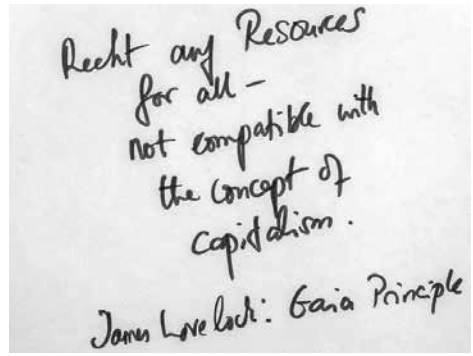 Recht auf Resources
for all -
not compatible with
the concept of
capitalism.
James Lovelock: Gaia Principle